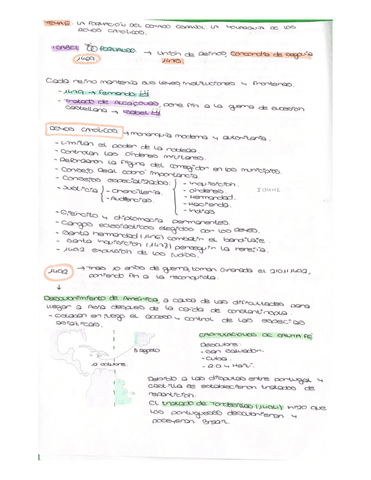 TEMA 5: LA FORMACIÓN DEL ESTADO ESPAÑOL. LA MONARQUÍA DE LOS
REYES CATÓLICOS.
ISABEL FERNANDO → Unión de Reinos, Concordia de Segovia
1475
Cada reino mantenía sus leyes, instituciones y fronteras.
- Tratado de Alcaçovas, pone fin a la guerra de sucesión
castellana → Isabel
REYES CATÓLICOS → monarquía moderna y autoritaria.
- Limitan el poder de la nobleza.
- Controlan las Órdenes militares.
- Reforzaron la figura del corregidor en los municipios.
- Consejo Real cobró importancia.
- Consejos especializados: - Inquisición.
- Órdenes.
- Justicia - Chancillería. - Hermandad.
- Audiencias - Hacienda.
- Indias
- Ejército y diplomacia permanentes.
- Cargos eclesiásticos elegidos por los reyes.
- Santa Hermandad (1476) combatir el bandidaje.
- Santa Inquisición (1478) perseguir la herejía.
- 1492 expulsión de los judíos.
1492 → Tras 10 años de guerra, toman Granada el 2/01/1492,
poniendo fin a la reconquista.
↓
Descubrimiento de América, a causa de las dificultades para
llegar a Asia después de la caída de Constantinopla.
- Estaban en juego el acceso y control de las especias
asiáticas.
CAPITULACIONES DE SANTA FE
Descubre:
3 agosto
- San Salvador.
- Cuba.
12 octubre
Debido a las disputas entre Portugal y
Castilla se establecieron tratados de
repartición.
El Tratado de Tordesillas (1494) hizo que
los portugueses descubrieran y
poseyeran Brasil.